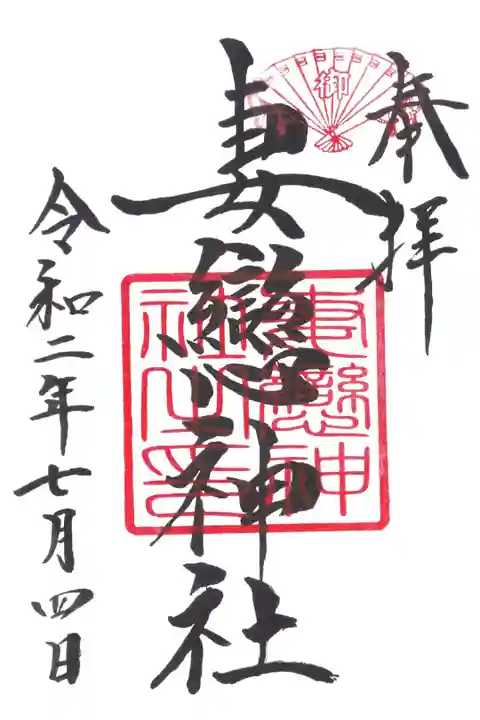 奉拝
御
妻戀神社
妻戀神社之印
令和二年七月四日